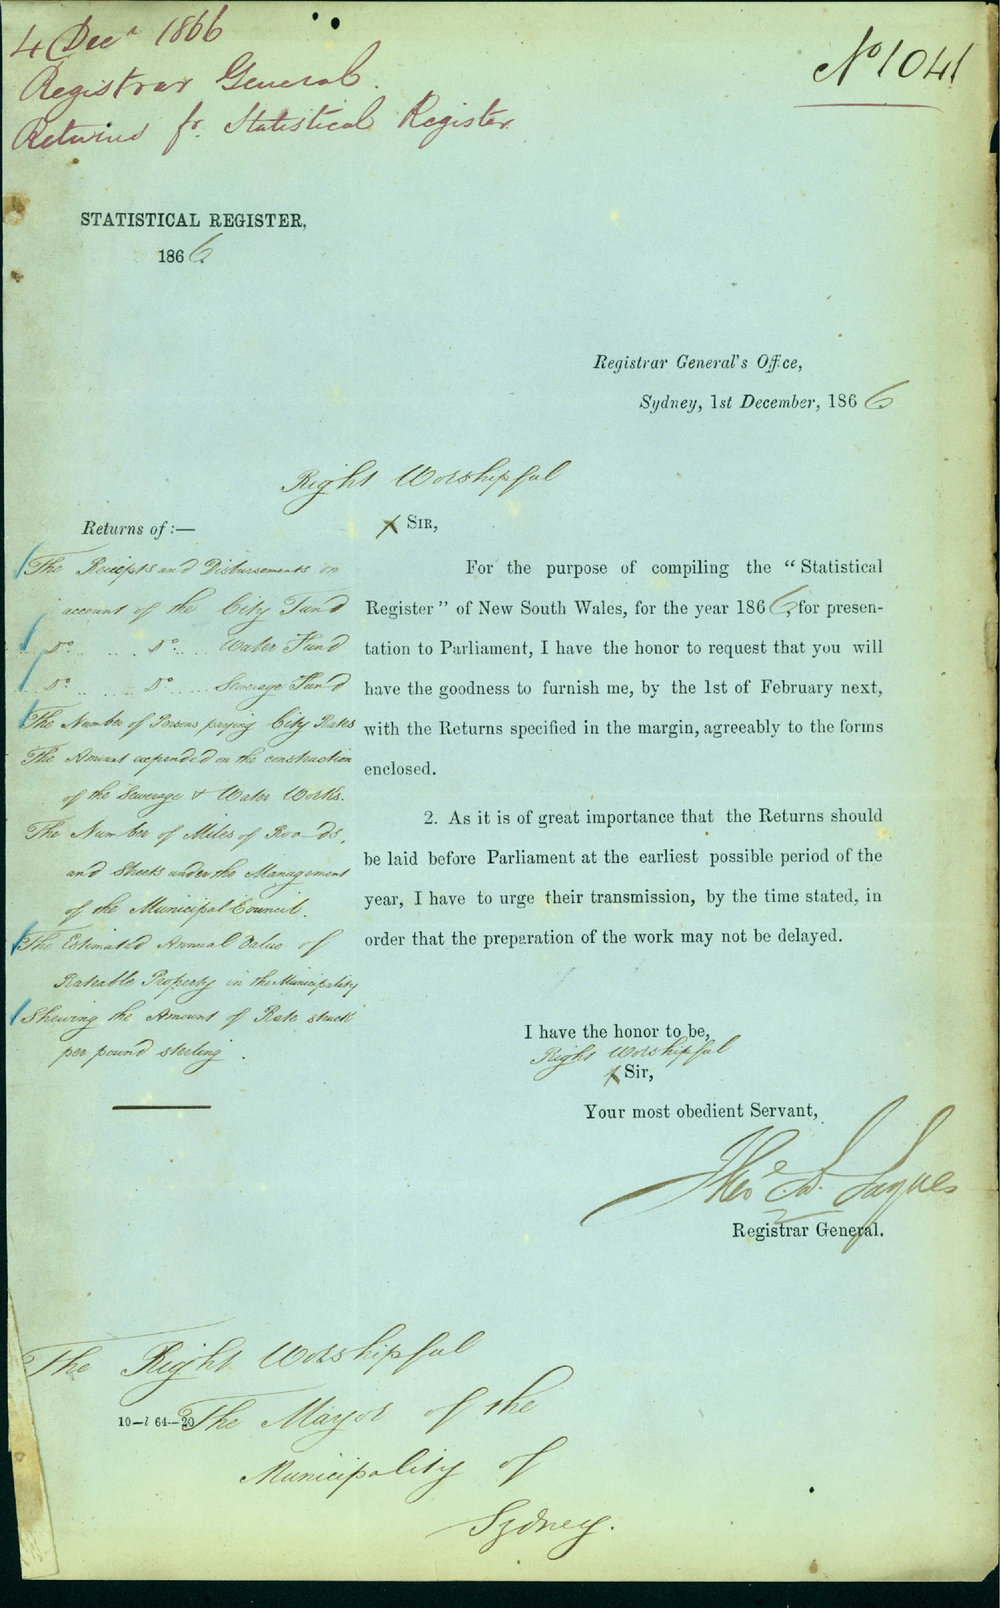 4 Decr 1866
Registrar General.
Returns for Statistical Register
No 1041
STATISTICAL REGISTER,
1866.
Registrar General's Office,
Sydney, 1st December, 1866
Right Worshipful
x SIR,
Returns of:—
The Receipts and Disbursements on
account of the City Fund
Do Do Water Fund
Do Do Sewerage Fund
The Number of Persons paying City Rates
The Amount expended on the construction
of the Sewerage & Water Works.
The Number of Miles of Roads,
and Streets under the Management
of the Municipal Council.
The Estimated Annual Value of
Rateable Property in the Municipality
Shewing the Amount of Rate struck
per pound sterling.
For the purpose of compiling the "Statistical
Register" of New South Wales, for the year 1866, for presen-
tation to Parliament, I have the honor to request that you will
have the goodness to furnish me, by the 1st of February next,
with the Returns specified in the margin, agreeably to the forms
enclosed.
2. As it is of great importance that the Returns should
be laid before Parliament at the earliest possible period of the
year, I have to urge their transmission, by the time stated, in
order that the preparation of the work may not be delayed.
I have the honor to be,
Right Worshipful
x Sir,
Your most obedient Servant,
Theo Jaques
Registrar General.
The Right Worshipful
10— 64—20
The Mayor of the
Municipality of
Sydney.